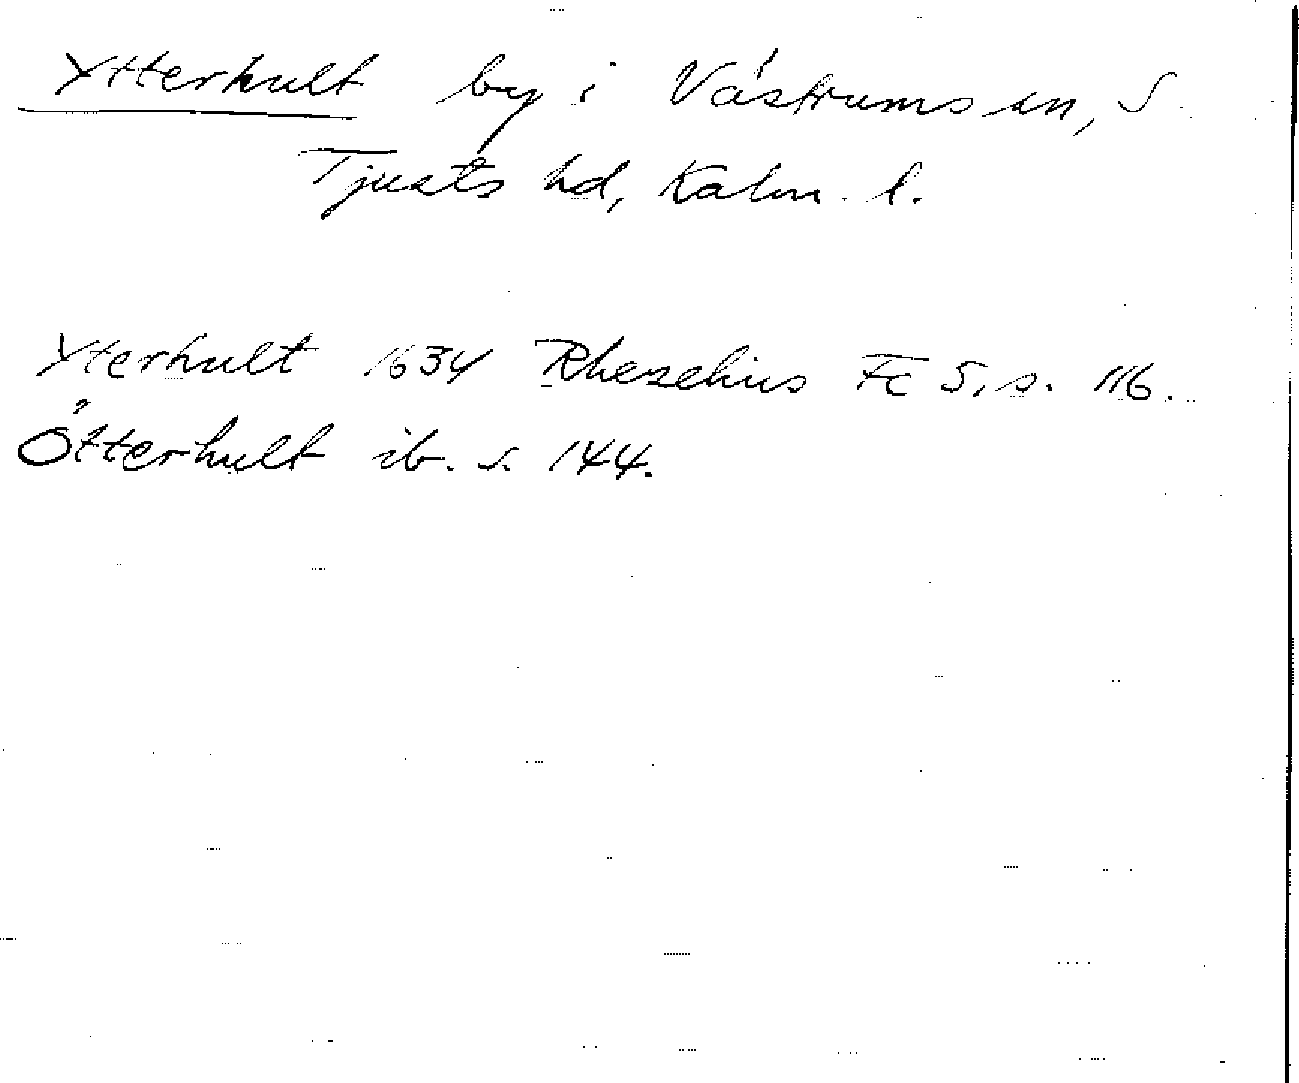 Ytterhult by i Västrums sn, S.
Tjusts hd, Kalm. l.
Yterhult 1634 Rhezelius Fc 5, s. 116.
Ötterhult ib. s. 144.